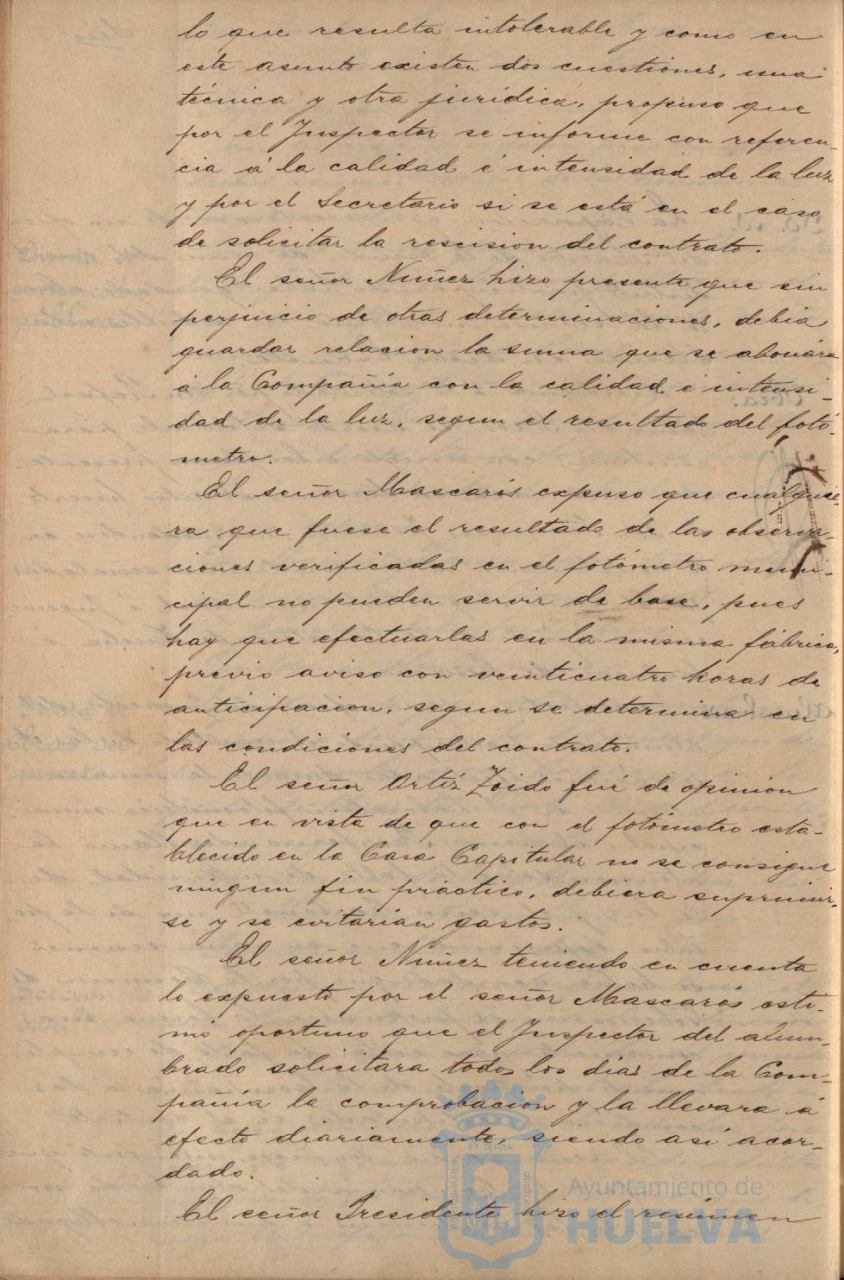 lo que resulta intolerable y como en
este asunto existen dos cuestiones, una
técnica y otra jurídica, propuso que
por el Inspector se informe con referen-
cia á la calidad é intensidad de la luz
y por el Secretario si se está en el caso
de solicitar la rescision del contrato.
El señor Nuñez hizo presente que sin
perjuicio de otras determinaciones, debia
guardar relacion la suma que se abonára
á la Compañía con la calidad é intensi-
dad de la luz, segun el resultado del fotó-
metro.
El señor Mascarós expuso que cualquie-
ra que fuese el resultado de las observa-
ciones verificadas en el fotómetro muni-
cipal no pueden servir de base, pues
hay que efectuarlas en la misma fábrica,
previo aviso con veinticuatro horas de
anticipacion, segun se determina en
las condiciones del contrato.
El señor Ortíz Zoido fué de opinion
que en vista de que con el fotómetro esta-
blecido en la Casa Capitular no se consigue
ningun fin práctico, debiera suprimir-
se y se evitarían gastos.
El señor Nuñez teniendo en cuenta
lo expuesto por el señor Mascarós esti-
mó oportuno que el Inspector del alum-
brado solicitára todos los dias de la Com-
pañía la comprobacion y la llevara á
efecto diariamente, siendo así acor-
dado.
El señor Presidente hizo el resúmen
Ayuntamiento de
HUELVA